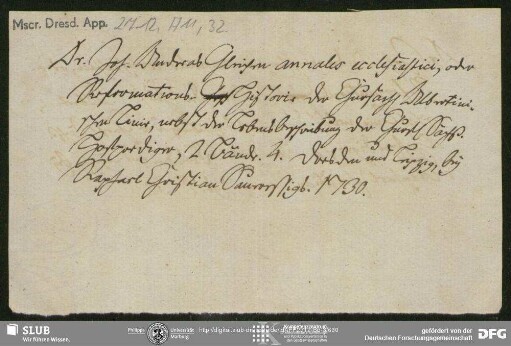 Mscr. Dresd. App. 2712, A11, 32
Dr. Joh. Andreas Gleichen annales ecclesiastici, oder
Reformations- Historie der Chursächs. Albertini-
schen Linie, nebst der Lebensbeschreibung der Churf. Sächs.
Hofprediger, 2 Bände. 4. Dresden und Leipzig, bey
Raphael Christian Saueressigk. 1730.
SLUB
Wir führen Wissen.
Philipps Universität
Marburg
gefördert von der
Deutschen Forschungsgemeinschaft
DFG